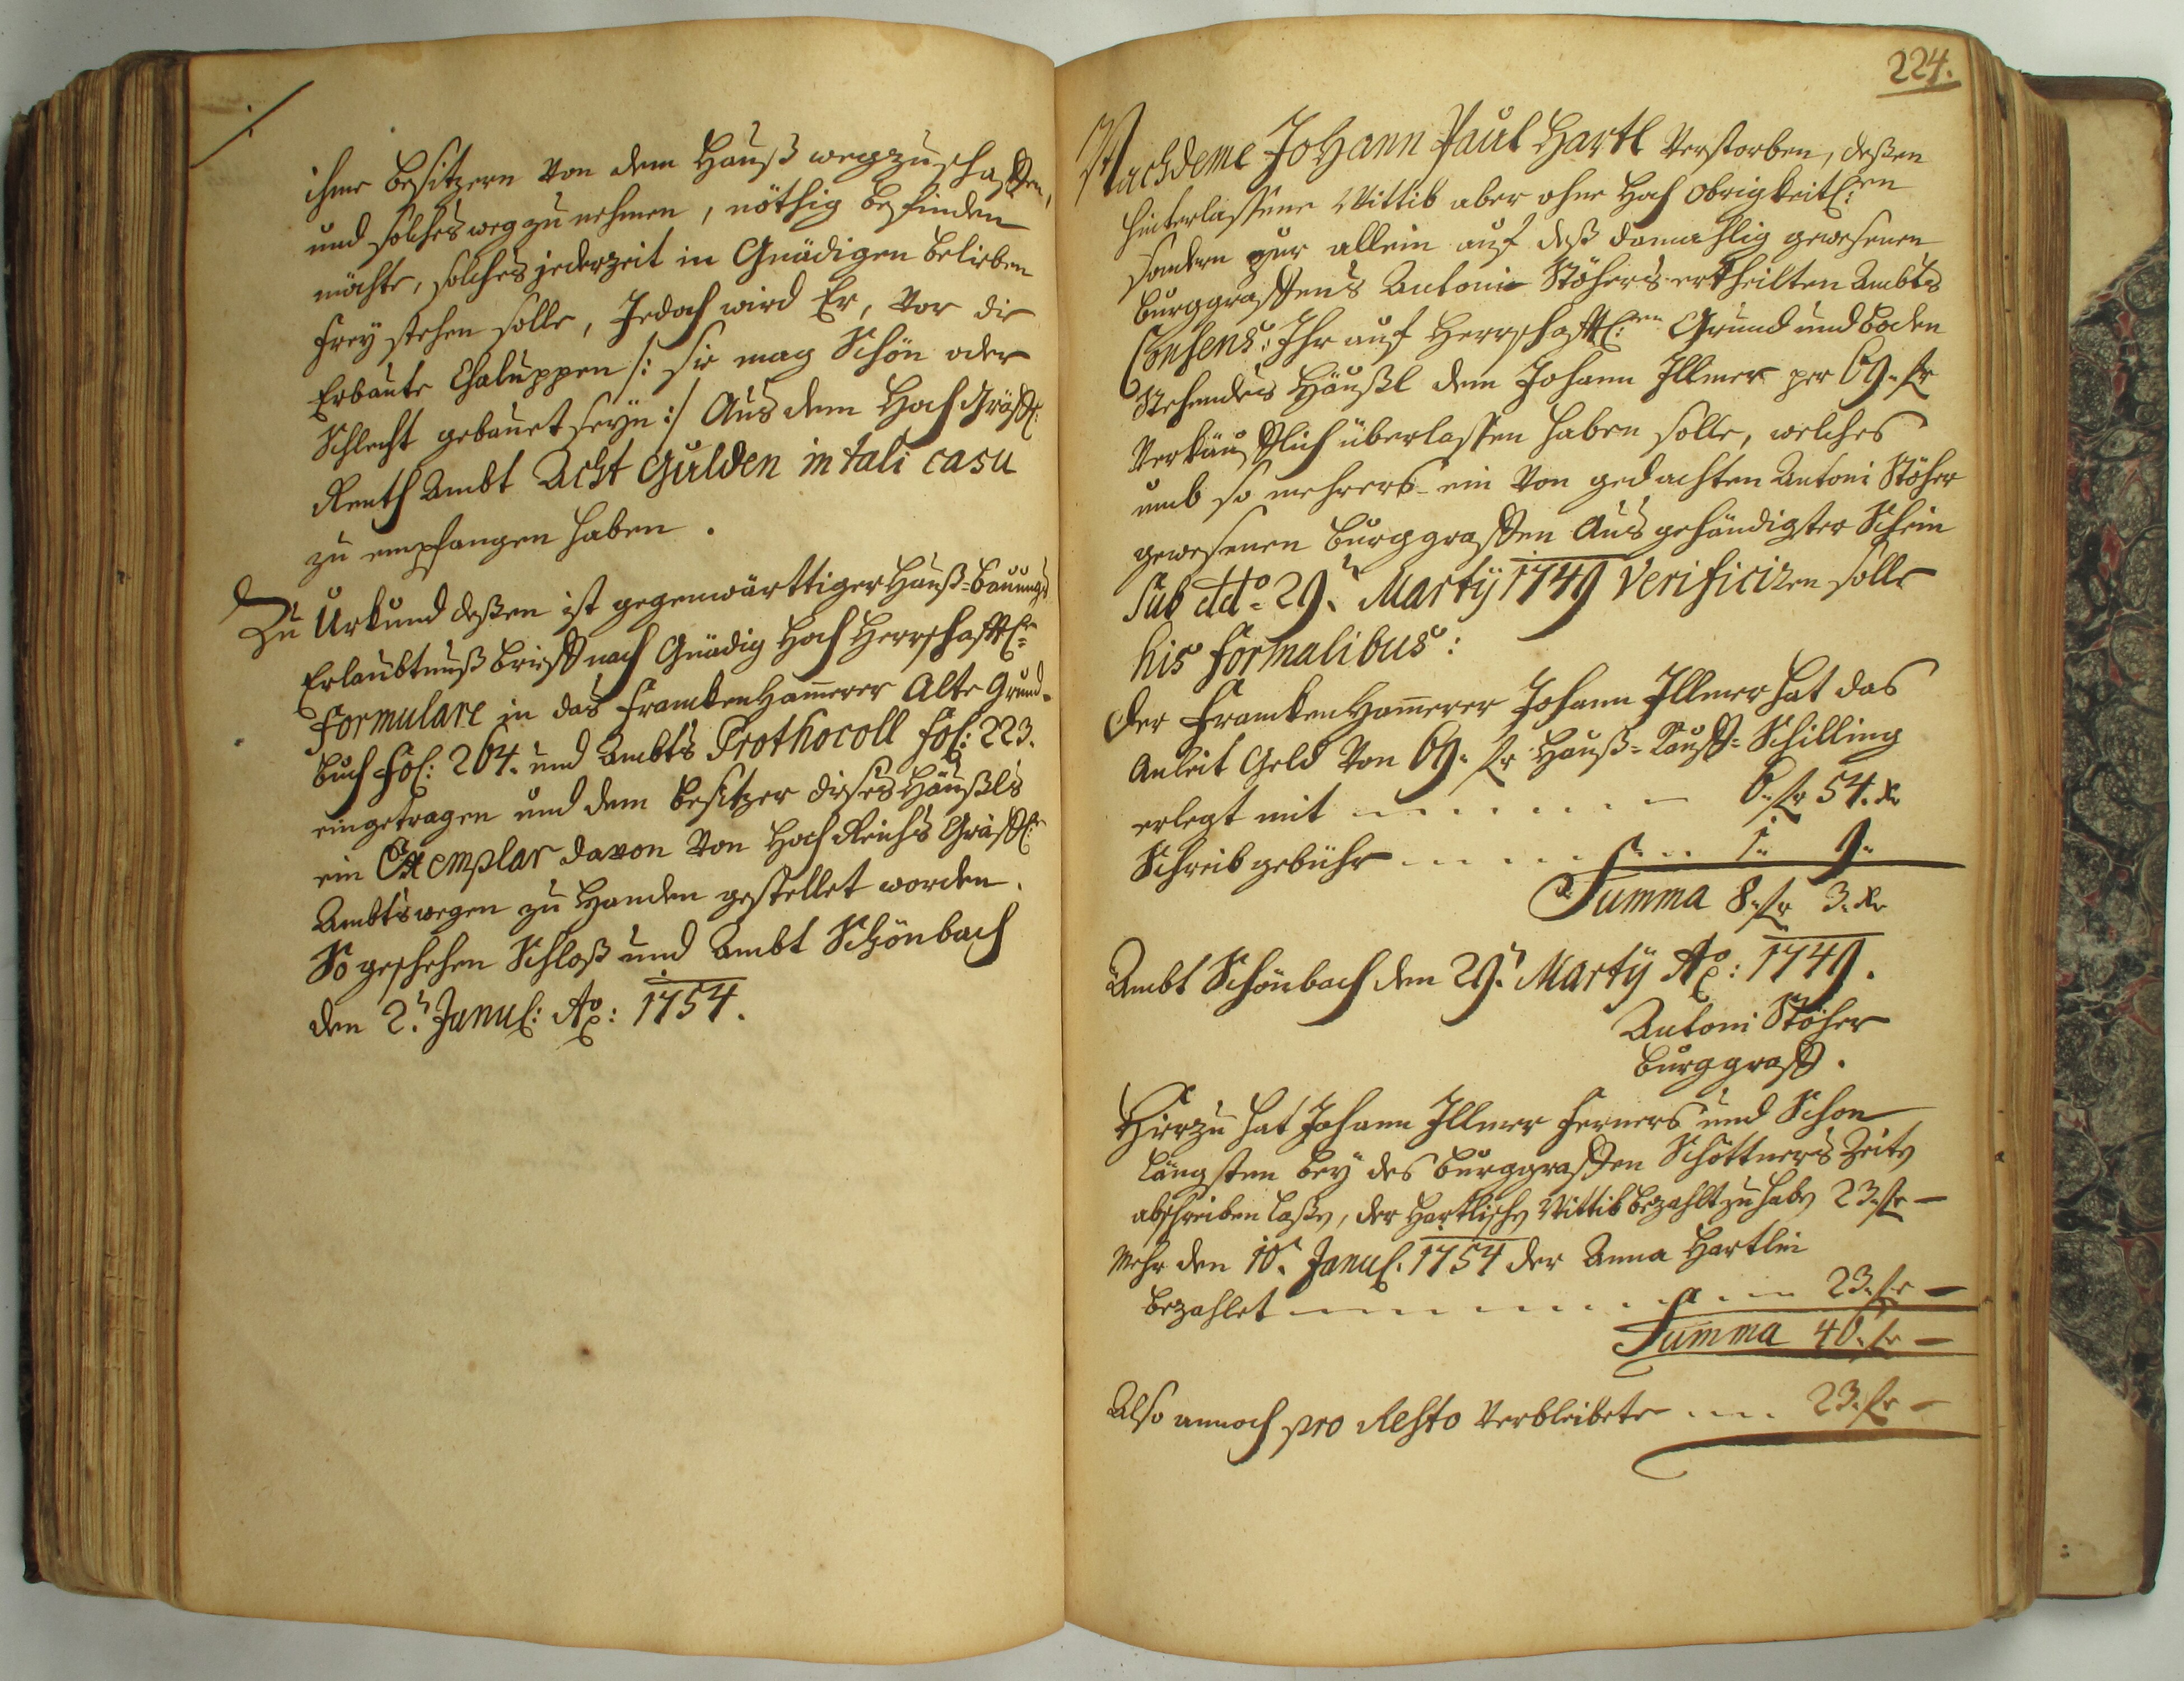 ihme Besitzern von dem Hauß wegzuschaffen,
und solches weg zu nehmen, nöthig befinden
möchte, solches jederzeit in Gnädigen Belieben
frey stehen solle, Jedoch wird Er, vor die
Erbaute Chaluppen /: sie mag Schön oder
Schlecht gebauet seyn :/ Aus dem Hoch Gräffl:
Renth Ambt Acht Gulden in tali casu
zu empfangen haben.
Zu Urkund deßen ist gegenwärttiger Hauß-Bauungs
Erlaubtnuß Brieff nach Gnädig Hoch Herrschafftl:en
Formulare in das Franckenhamerer Alte Grund-
Buch fol: 264. und Ambts Prothocoll fol: 223.
eingetragen und dem Besitzer dieses Häußls
ein Exemplar davon von Hoch Reichs Gräffl:en
Ambts wegen zu Handen gestellet worden.
So geschehen Schloß und Ambt Schönbach
den 2.t Janul: Ao: 1754.
224.
Nachdeme Johann Paul Hartl verstorben, deßen
hinterlassene Wittib aber ohne Hoch Obrigkeitl:en
sondern nur allein auf deß damahlig gewesenen
Burggraffens Antoni Stöhers ertheilten Ambts
Consens: Ihr auf Herrschafftl:en Grund und Boden
Stehendes Häußl dem Johann Illmer per 69. fr
verkäufflich überlassen haben solle, welches
umb so mehrers ein von gedachten Antoni Stöher
gewesenen Burggraffen Ausgehändigter Schein
sub ddo= 29.t Martÿ 1749 verificiren solle
his formalibus:
Der Franckenhamerer Johann Illmer hat das
Anleit Geld von 69. fr Hauß-Kauff-Schilling
erlegt mit 6. fr 54. Kr
Schreibgebühr 1. 9.
Summa 8. fr 3. Kr
Ambt Schönbach den 29.t Martÿ Ao: 1749.
Antoni Stöher
Burggraff.
Hierzu hat Johann Illmer ferners und Schon
längsten bey des Burggraffen Schöttners Zeiten
abschreiben laßen, der Hartlischen Wittib bezahlt zu haben 23. fr —
Mehr den 10.t Janul. 1754 der Anna Hartlin
bezahlet 23. fr —
Summa 46. fr —
Also annoch pro Resto verbleibete 23. fr —